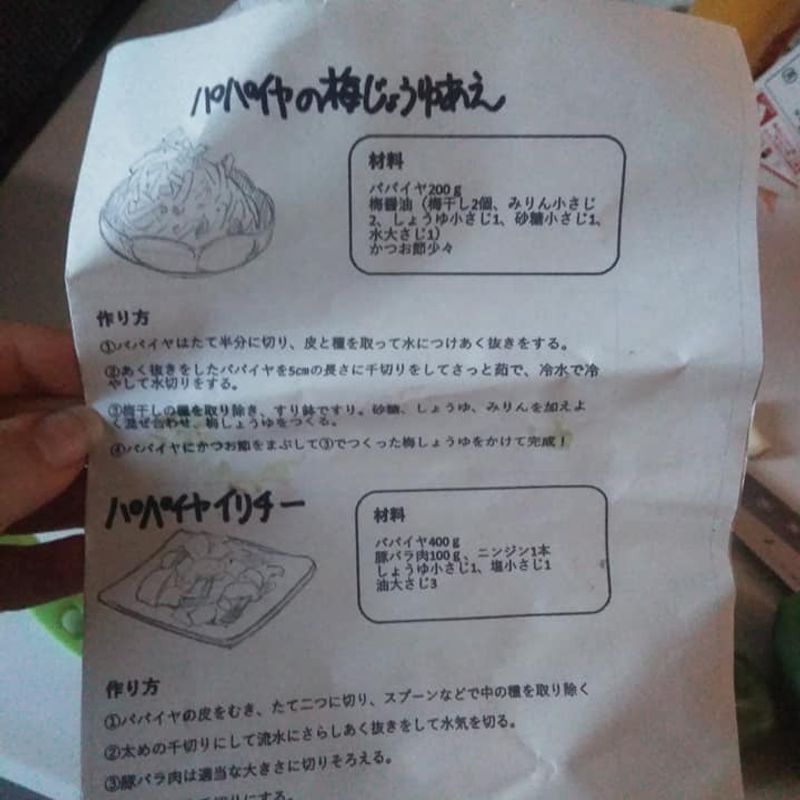 パパイヤの梅じょうゆあえ
材料
パパイヤ200ｇ
梅醤油（梅干し2個、みりん小さじ
2、しょうゆ小さじ1、砂糖小さじ1、
水大さじ1）
かつお節少々
作り方
①パパイヤはたて半分に切り、皮と種を取って水につけあく抜きをする。
②あく抜きをしたパパイヤを5cmの長さに千切りをしてさっと茹で、冷水で冷
やして水切りをする。
③梅干しの種を取り除き、すり鉢ですり。砂糖、しょうゆ、みりんを加えよ
く混ぜ合わせ、梅しょうゆをつくる。
④パパイヤにかつお節をまぶして③でつくった梅しょうゆをかけて完成！
パパイヤイリチー
材料
パパイヤ400ｇ
豚バラ肉100ｇ、ニンジン1本
しょうゆ小さじ1、塩小さじ1
油大さじ3
作り方
①パパイヤの皮をむき、たて二つに切り、スプーンなどで中の種を取り除く
②太めの千切りにして流水にさらしあく抜きをして水気を切る。
③豚バラ肉は適当な大きさに切りそろえる。
切りにする。